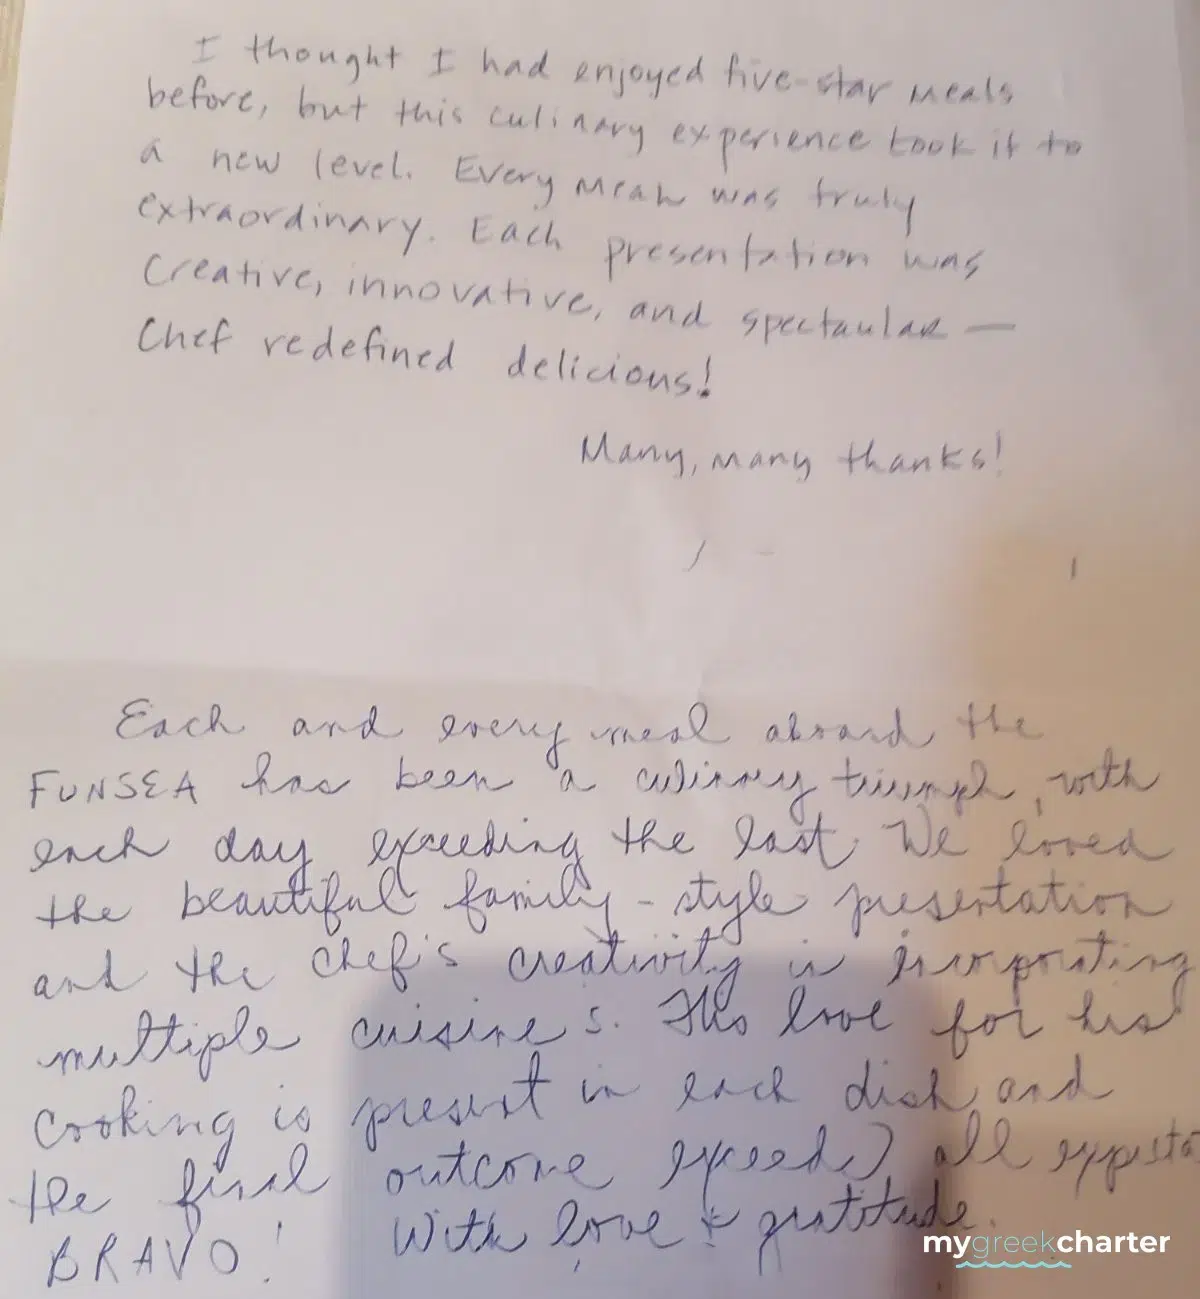 I thought I had enjoyed five-star meals
before, but this culinary experience took it to
a new level. Every meal was truly
extraordinary. Each presentation was
Creative, innovative, and spectaular —
Chef redefined delicious!
Many, many thanks!
Each and every meal aboard the
FUNSEA has been a culinary triumph, with
each day exceeding the last. We loved
the beautiful family-style presentation
and the chef's creativity in incorporating
multiple cuisines. His love for his
cooking is present in each dish and
the final outcome exceeds all
BRAVO! With love & gratitude.
mygreekcharter